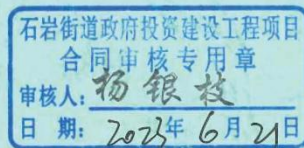 石岩街道政府投资建设工程项目
合同审核专用章
审核人：杨银枝
日 期：2023年6月21日